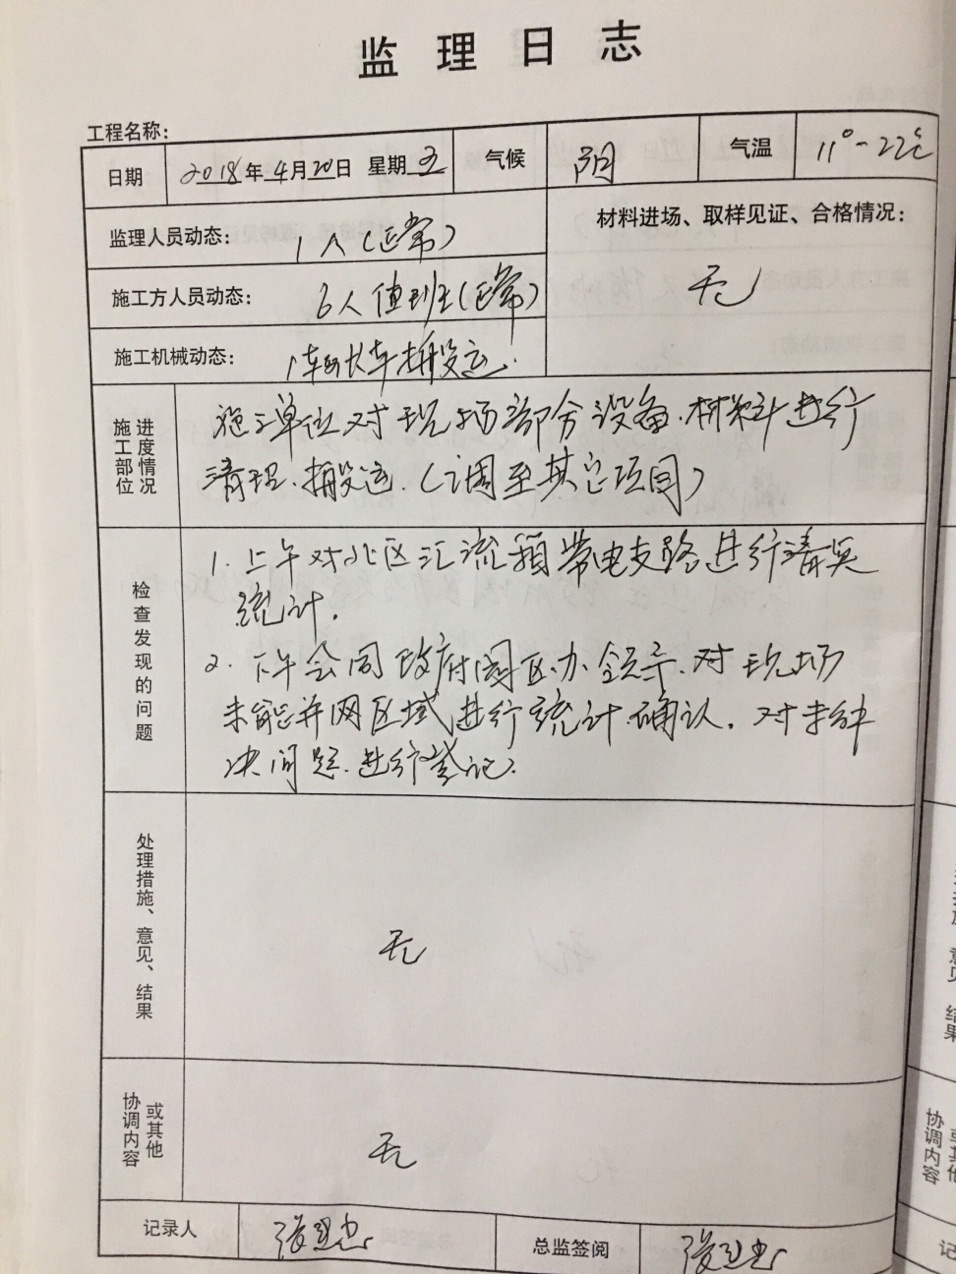 监理日志
工程名称:
日期 2018年4月20日 星期五 气候 阴 气温 11°-22℃
监理人员动态: 1人(正常)
材料进场、取样见证、合格情况:
无
施工方人员动态: 6人值班(正常)
施工机械动态: 1辆长车搬运.
施工部位进度情况
施工单位对现场部分设备.材料进行
清理.搬运.(调至其它项目)
检查发现的问题
1.上午对北区汇流箱带电支路进行清点
统计.
2.下午会同政府园区办领导.对现场
未能并网区域进行统计确认.对未解
决问题.进行登记.
处理措施、意见、结果
无
协调内容或其他
无
记录人 总监签阅